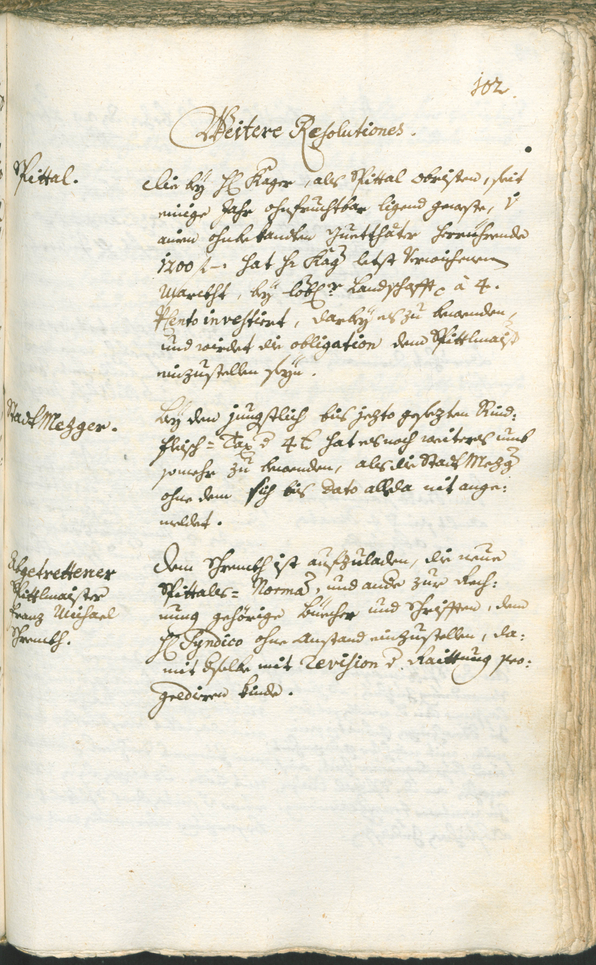 102.
Weitere Resolutiones.
Spittal.
Die bey H: Kager, als Spittal obristen, seit
einige Jahr ohnfruchtbar ligend geweste,
ainem ohnbekandten Guetthäter herrüehrende
1200 f. hat H: Kag letst
Marckht, bey löbl: Landschafft, à 4.
Pcento investiert, darbey es zu bewenden,
und wirdet die obligation dem Spittlmaist
einzustellen seyn.
Stadt Mezger.
Bey dem jüngstlich bis jezto gesezten Rind:
fleisch=Tax d 4 hat es noch weiters umb
somehr zu bewenden, als die Stadt Mezg
ohne dem sich bis dato allda nit ange:
meldet.
Abgetrettener
Spittlmaister
Franz Michael
Schremth.
Dem Schremth ist aufzuladen, die neue
Spittals=Norma, und ande zur Rech:
nung gehörige büecher und Schrifften, dem
H: Syndico ohne Anstand einzustellen, da:
mit dselbe mit revision d. Raittung pro:
gediren künde.